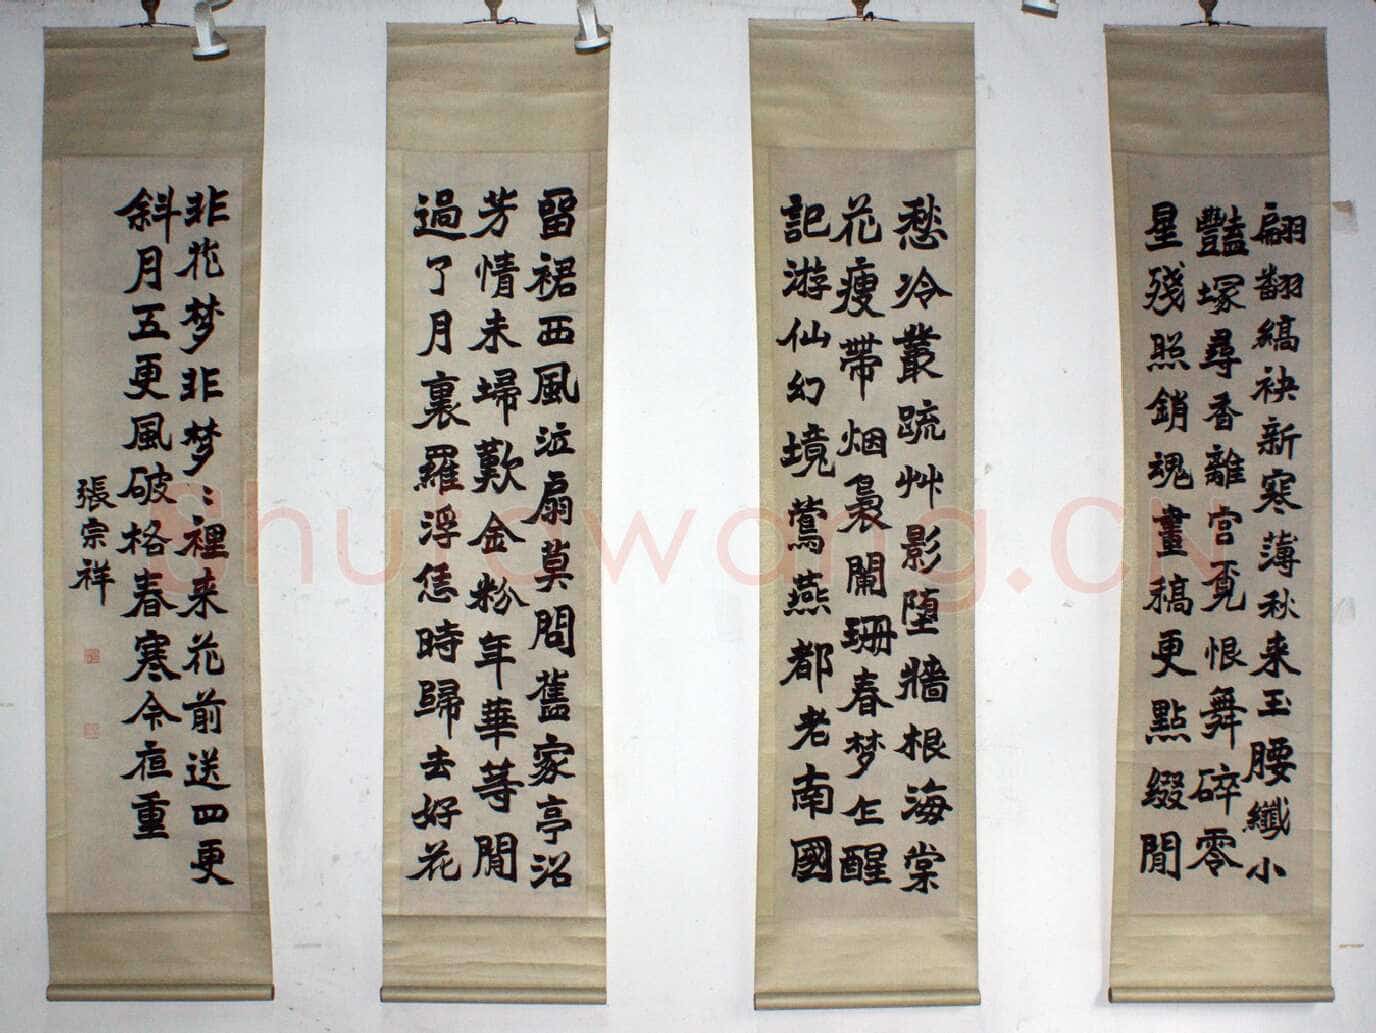 翩翻縞袂新寒薄秋来玉腰纖小
豔塚尋香離宫覓恨舞碎零
星殘照銷魂畫稿更點綴閒
愁冷叢疏艸影墮牆根海棠
花瘦帶烟裊闌珊春梦乍醒
記游仙幻境鶯燕都老南國
留裙西風泣扇莫問舊家亭沼
芳情未歸歎金粉年華等閒
過了月裏羅浮恁時歸去好花
非花梦非梦〻裡来花前送四更
斜月五更風破格春寒今夜重
張宗祥